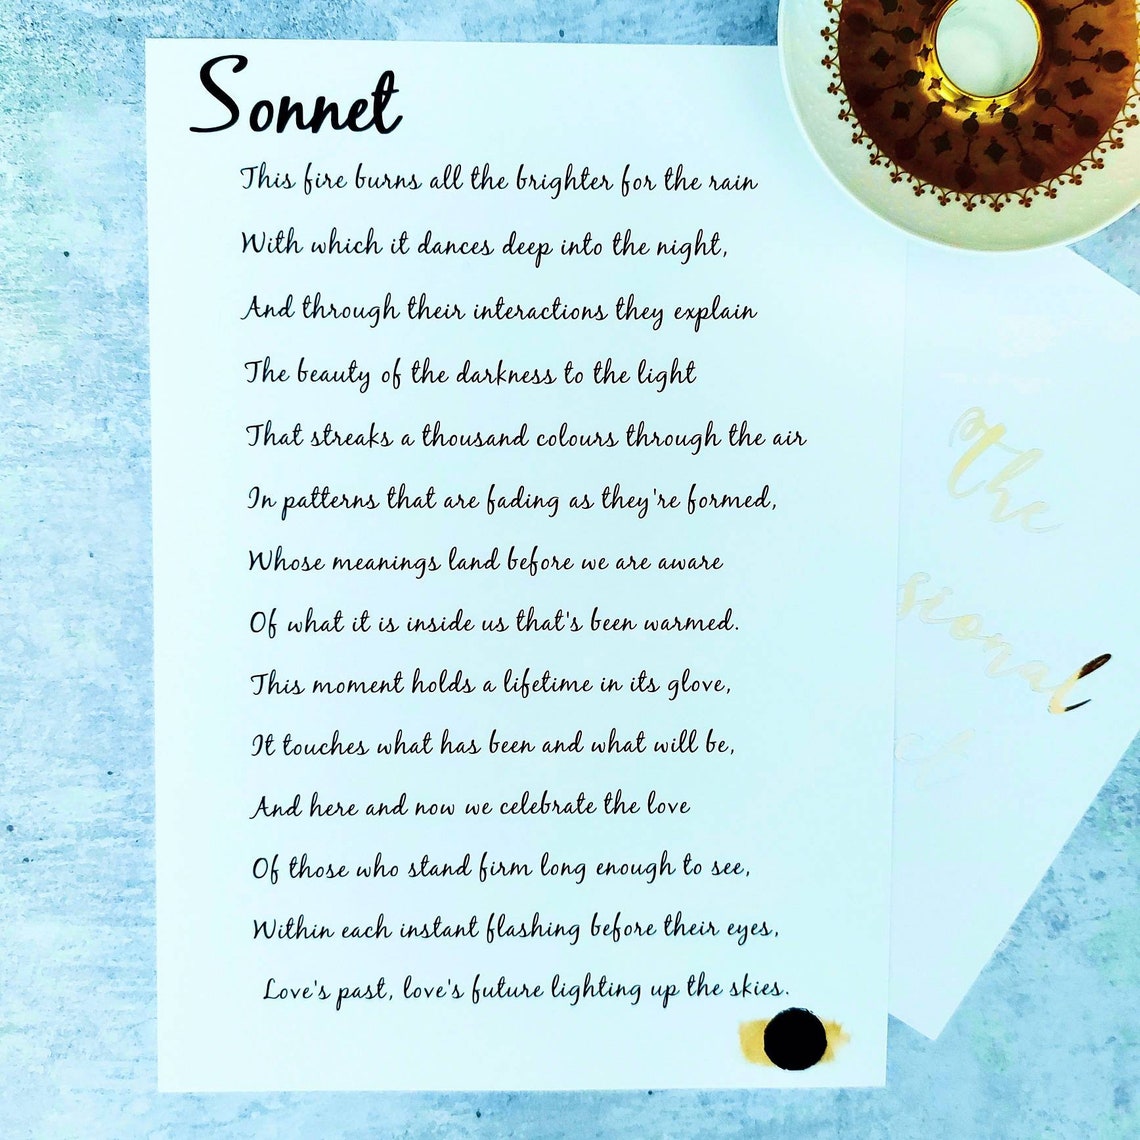 Sonnet
This fire burns all the brighter for the rain
With which it dances deep into the night,
And through their interactions they explain
The beauty of the darkness to the light
That streaks a thousand colours through the air
In patterns that are fading as they're formed,
Whose meanings land before we are aware
Of what it is inside us that's been warmed.
This moment holds a lifetime in its glove,
It touches what has been and what will be,
And here and now we celebrate the love
Of those who stand firm long enough to see,
Within each instant flashing before their eyes,
Love's past, love's future lighting up the skies.
the
sional